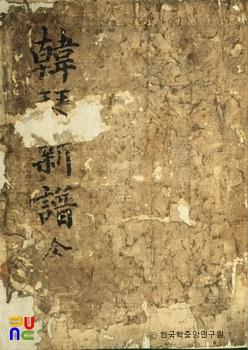 韓琴新譜 全
PUNC
© 한국학중앙연구원